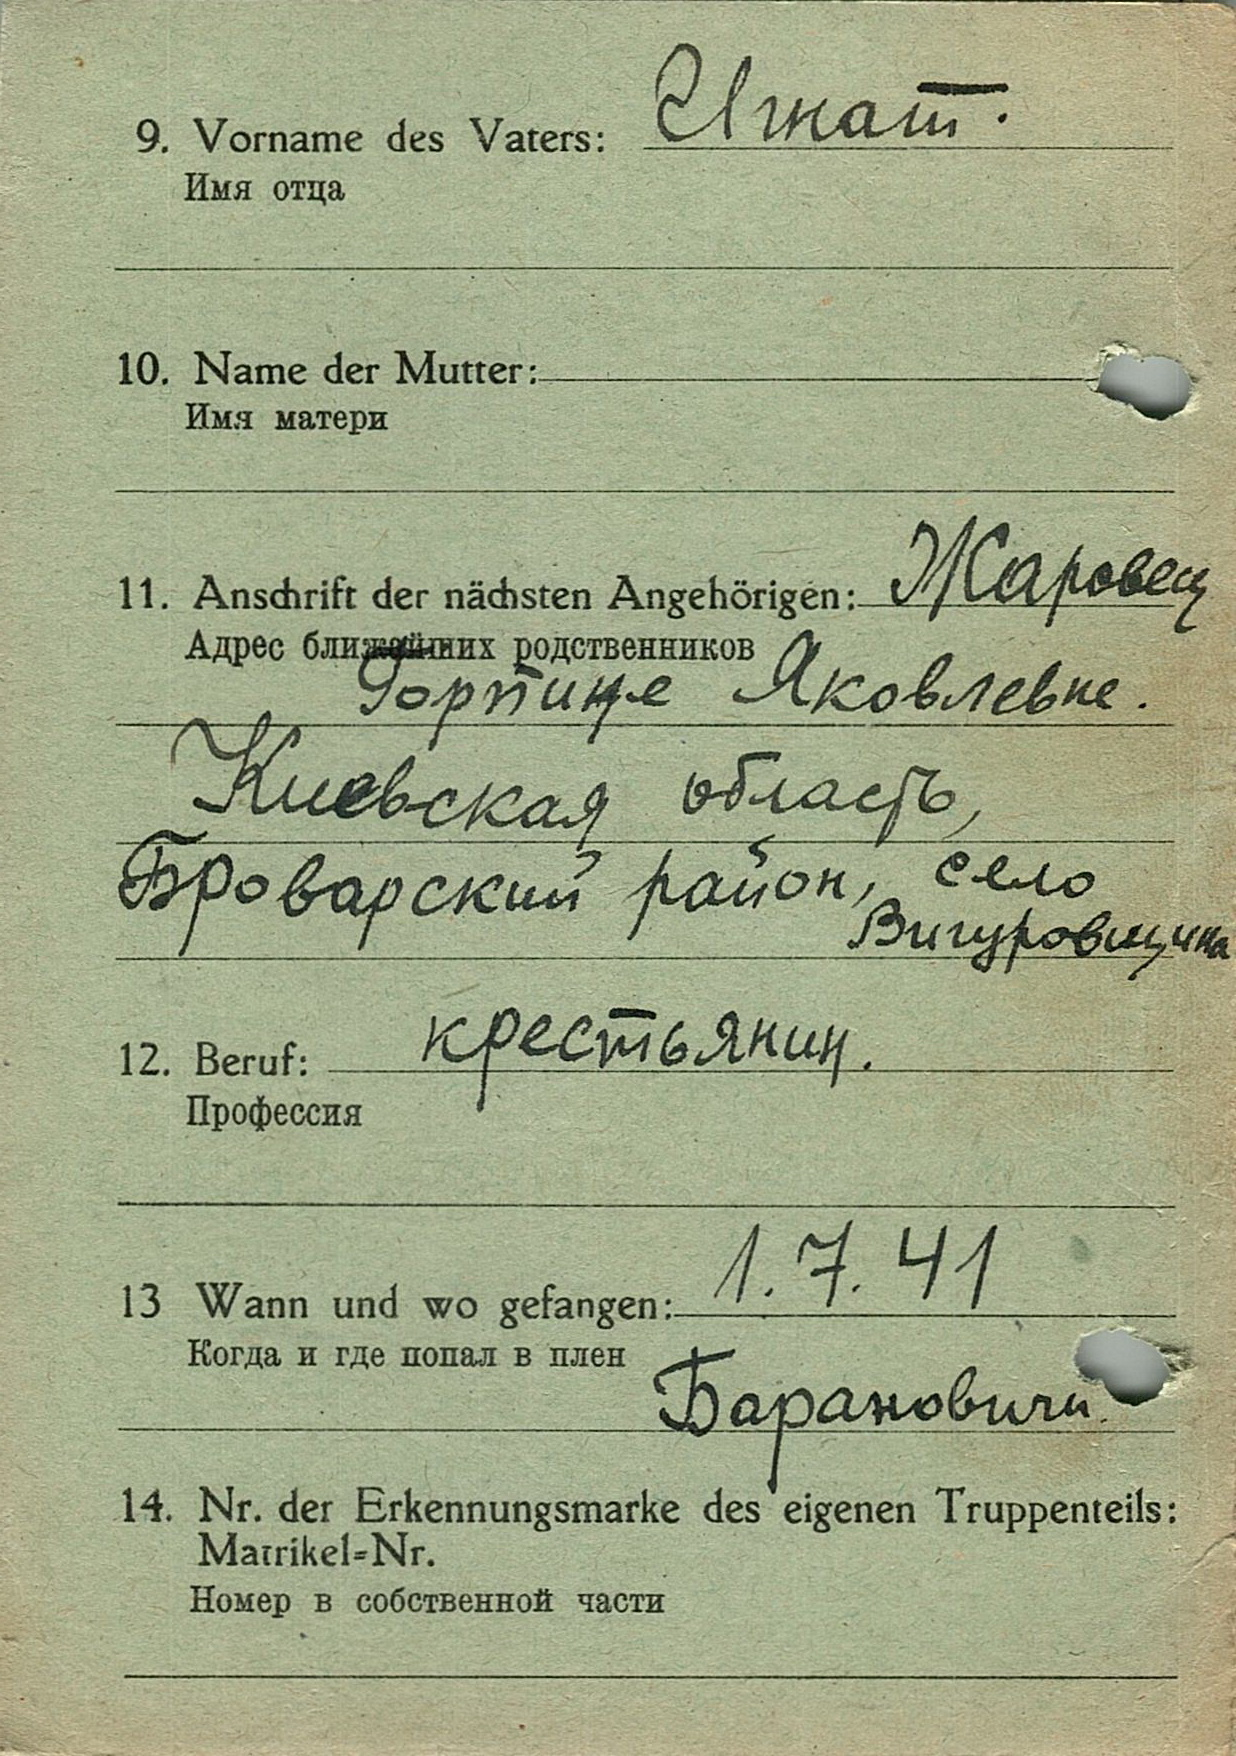 9. Vorname des Vaters: Игнат.
Имя отца
10. Name der Mutter:
Имя матери
11. Anschrift der nächsten Angehörigen: Жаровец
Адрес ближайших родственников
Горпине Яковлевне.
Киевская область,
Броварский район, село
Вигуровщина
12. Beruf: крестьянин.
Профессия
13 Wann und wo gefangen: 1.7.41
Когда и где попал в плен
Барановичи.
14. Nr. der Erkennungsmarke des eigenen Truppenteils:
Matrikel=Nr.
Номер в собственной части